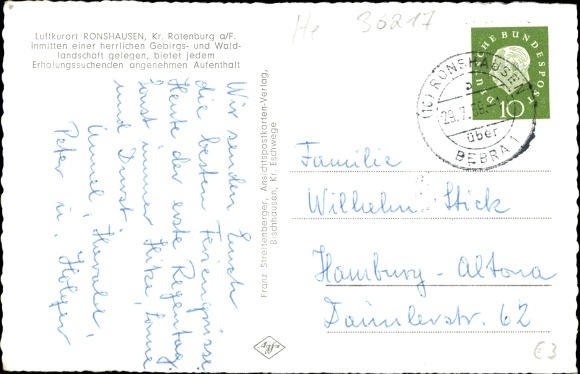 Luftkurort RONSHAUSEN, Kr. Rotenburg a/F.
Inmitten einer herrlichen Gebirgs- und Wald-
landschaft gelegen, bietet jedem
Erholungssuchenden angenehmen Aufenthalt
He 36217
DEUTSCHE BUNDESPOST
10
(16) RONSHAUSEN
29.7.
über
BEBRA 1
Wir senden Euch
die besten Feriengrüsse.
Heute der erste Regentag,
sonst immer Hitze, Sonne
und Durst.
Annel, Harald,
Peter u. Holger
Franz Streitenberger, Ansichtspostkarten-Verlag,
Bischhausen, Kr. Eschwege
Agfa
Familie
Wilhelm Stick
Hamburg-Altona
Daimlerstr. 62
€3